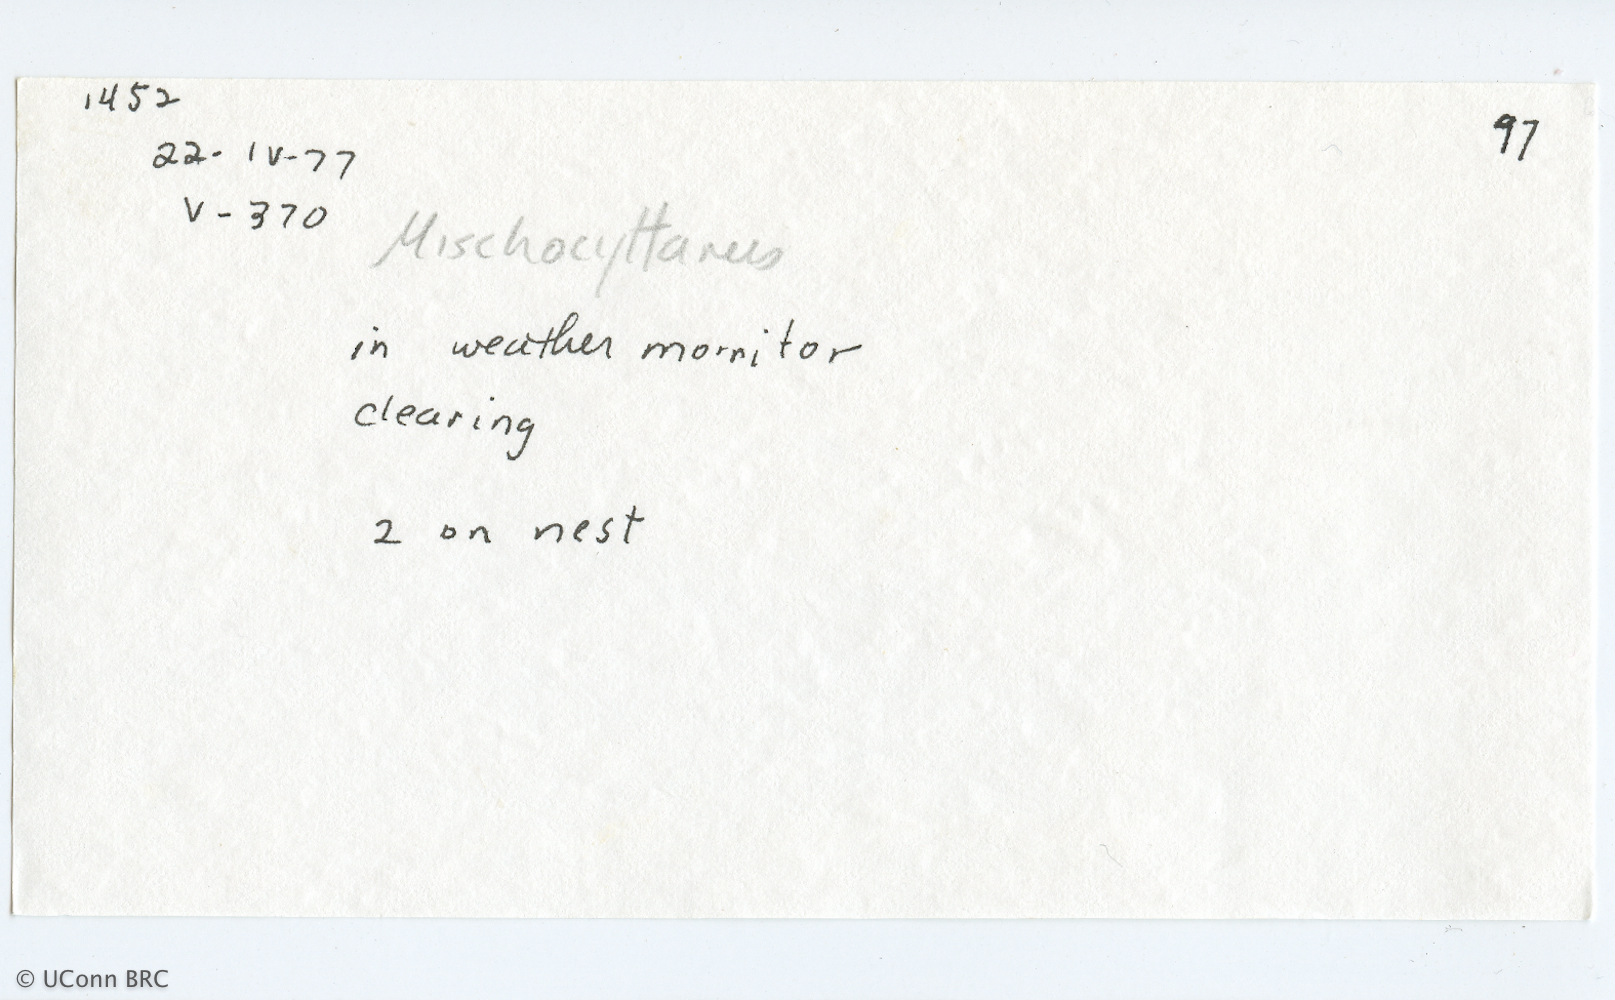 1452
97
22-IV-77
V-370
Mischocyttarus
in weather mornitor
clearing
2 on nest
© UConn BRC